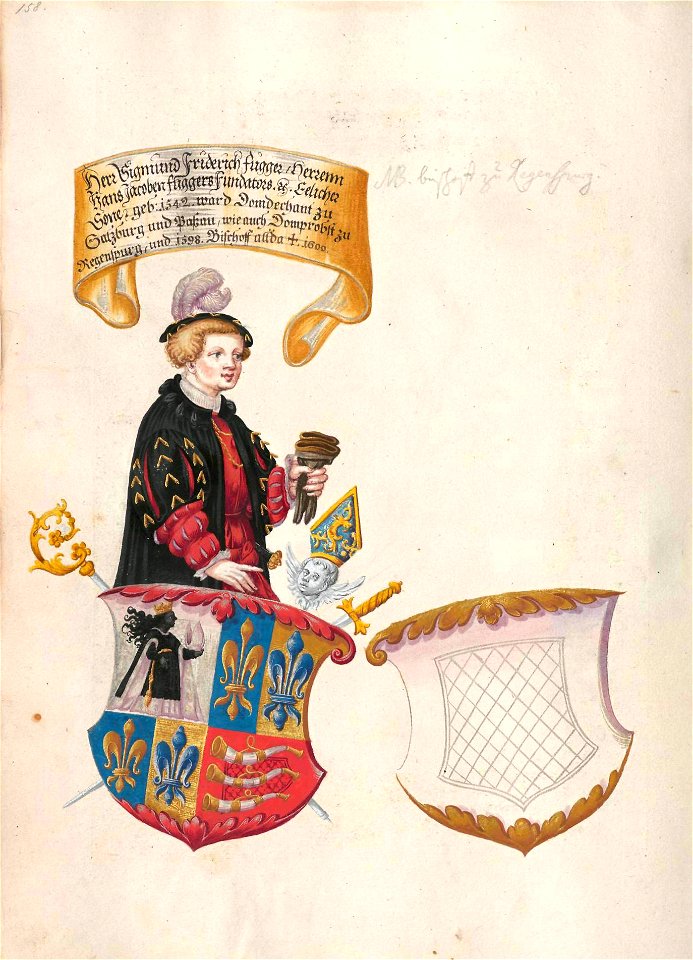 158.
Herr Sigmund Friderich fugger, Herrenn
Hans Jacoben fuggers fundators. &. Eelicher
Sone, geb: 1542. ward Domdechant zu
Saltzburg und Paßau, wie auch Domprobst zu
Regenspurg, und 1598. Bischoff allda ✝. 1600.
NB. bischoff zu Regenspurg.